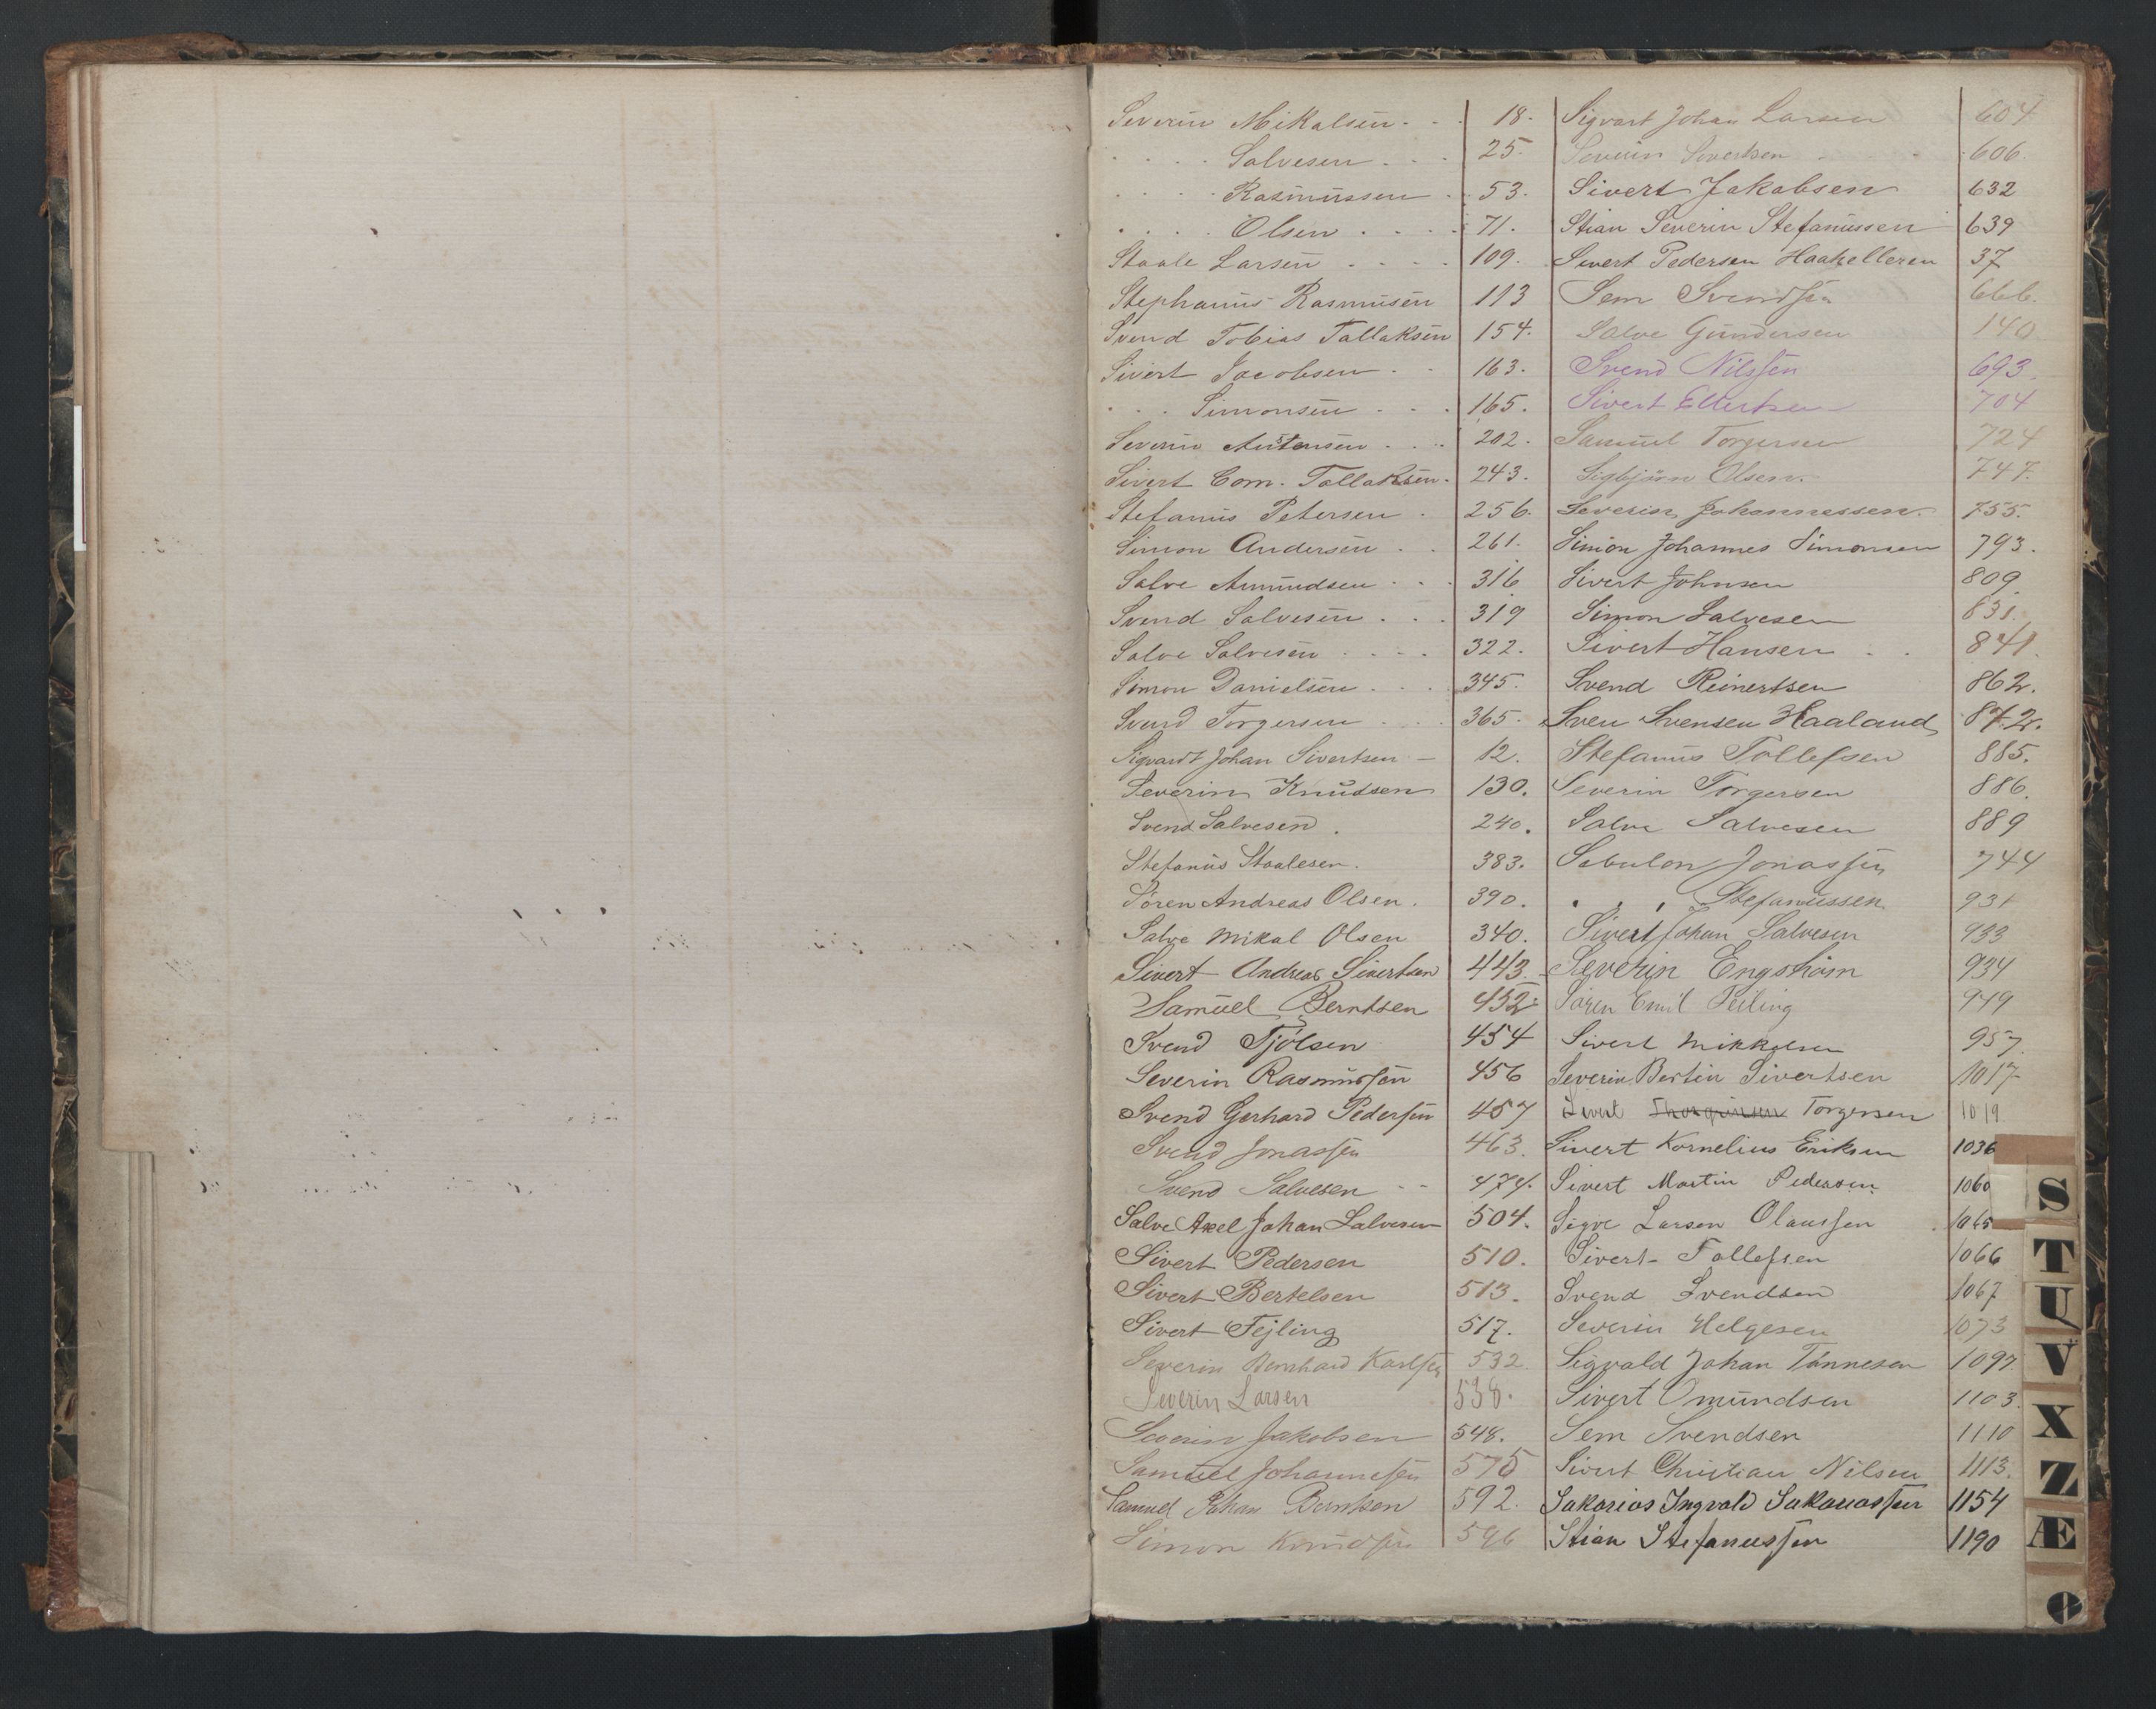 Severin Mikalsen 18.
Salvesen 25.
Rasmussen 53.
Olsen 71.
Staale Larsen 109.
Stephanus Rasmusen 113
Svend Tobias Tallaksen 154.
Sivert Jacobsen 163.
Simonsen 165.
Severin Austensen 202.
Sivert Corn. Tallaksen 243.
Stefanus Petersen 256.
Simon Andersen 261.
Salve Amundsen 316
Svend Salvesen 319
Salve Salvesen 322.
Simon Danielsen 345.
Svend Torgersen 365.
Sigvardt Johan Sivertsen 12.
Severin Knudsen 130.
Svend Salvesen 240.
Stefanus Staalesen. 383.
Sören Andreas Olsen. 390.
Salve Mikal Olsen 340.
Sivert Andreas Sivertsen 443.
Samuel Berntsen 452.
Svend Tjölsen 454
Severin Rasmussen 456
Svend Gerhard Pedersen 457
Svend Jonassen 463.
Svend Salvesen 474.
Salve Axel Johan Salvesen 504.
Sivert Pedersen 510.
Sivert Bertelsen 513.
Sivert Fejling 517.
Severin Bernhard Karlsen 532.
Severin Larsen 538.
Severin Jakobsen 548.
Samuel Johannesen 575
Samuel Johan Berntsen 592.
Simon Knudsen 596
Sigvart Johan Larsen 604
Severin Sivertsen 606.
Sivert Jakobsen 632
Stian Severin Stefanussen 639
Sivert Pedersen Haahelleren 37
Sem Svendsen 666.
Salve Gundersen 140.
Svend Nilssen 693.
Sivert Ellertsen 704
Samuel Torgersen 724
Sigbjörn Olsen. 747.
Severin Johannessen. 755.
Simon Johannes Simonsen 793.
Sivert Johnsen 809.
Simon Salvesen 831.
Sivert Hansen 841.
Svend Reinertsen 862.
Sven Svensen Haaland 872.
Stefanus Tollefsen 885.
Severin Torgersen 886.
Salve Salvesen 889
Sebulon Jonassen 744
Stefanussen 931
Sivert Johan Salvesen 933
Severin Engström 934
Sören Emil Feiling 949
Sivert Mikkelsen 957.
Severin Bertin Sivertsen 1017
Sivert Torgersen 1019.
Sivert Kornelius Eriksen 1036
Sivert Martin Pedersen 1060
Sigve Larsen Olaussen 1065
Sivert Tollefsen 1066
Svend Svendsen 1067
Severin Helgesen 1073
Sigvald Johan Tönnesen 1097
Sivert Omundsen 1103.
Sem Svendsen 1110
Sivert Christian Nilsen 1113.
Sakarias Ingvald Sakariassen 1154
Stian Stefanussen 1190
S
T
U
V
X
Z
Æ